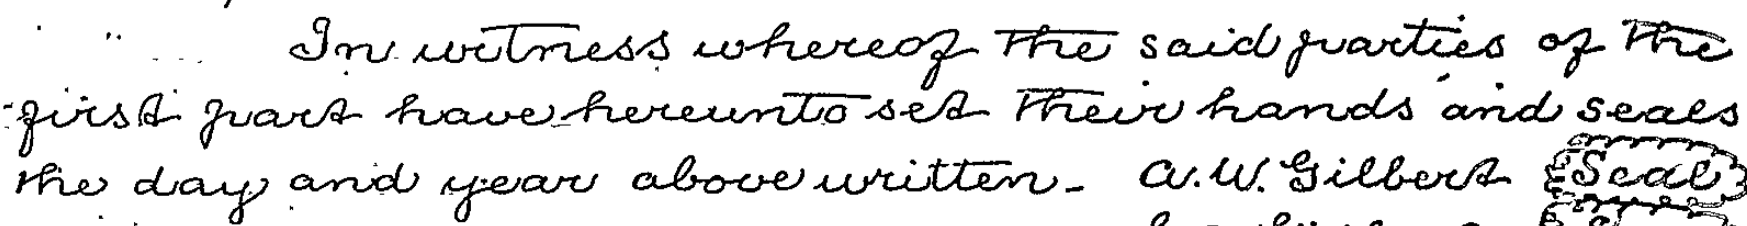 In witness whereof the said parties of the
first part have hereunto set their hands and seals
the day and year above written - A. W. Gilbert Seal